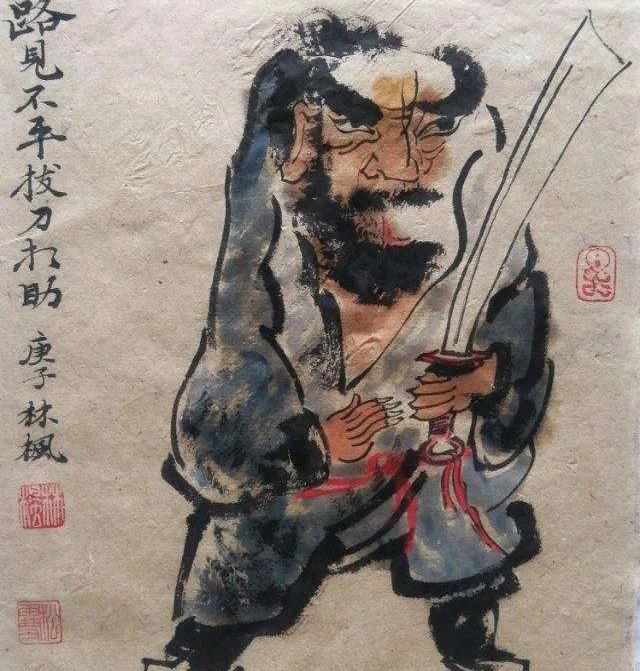 路見不平拔刀相助 庚子 林楓